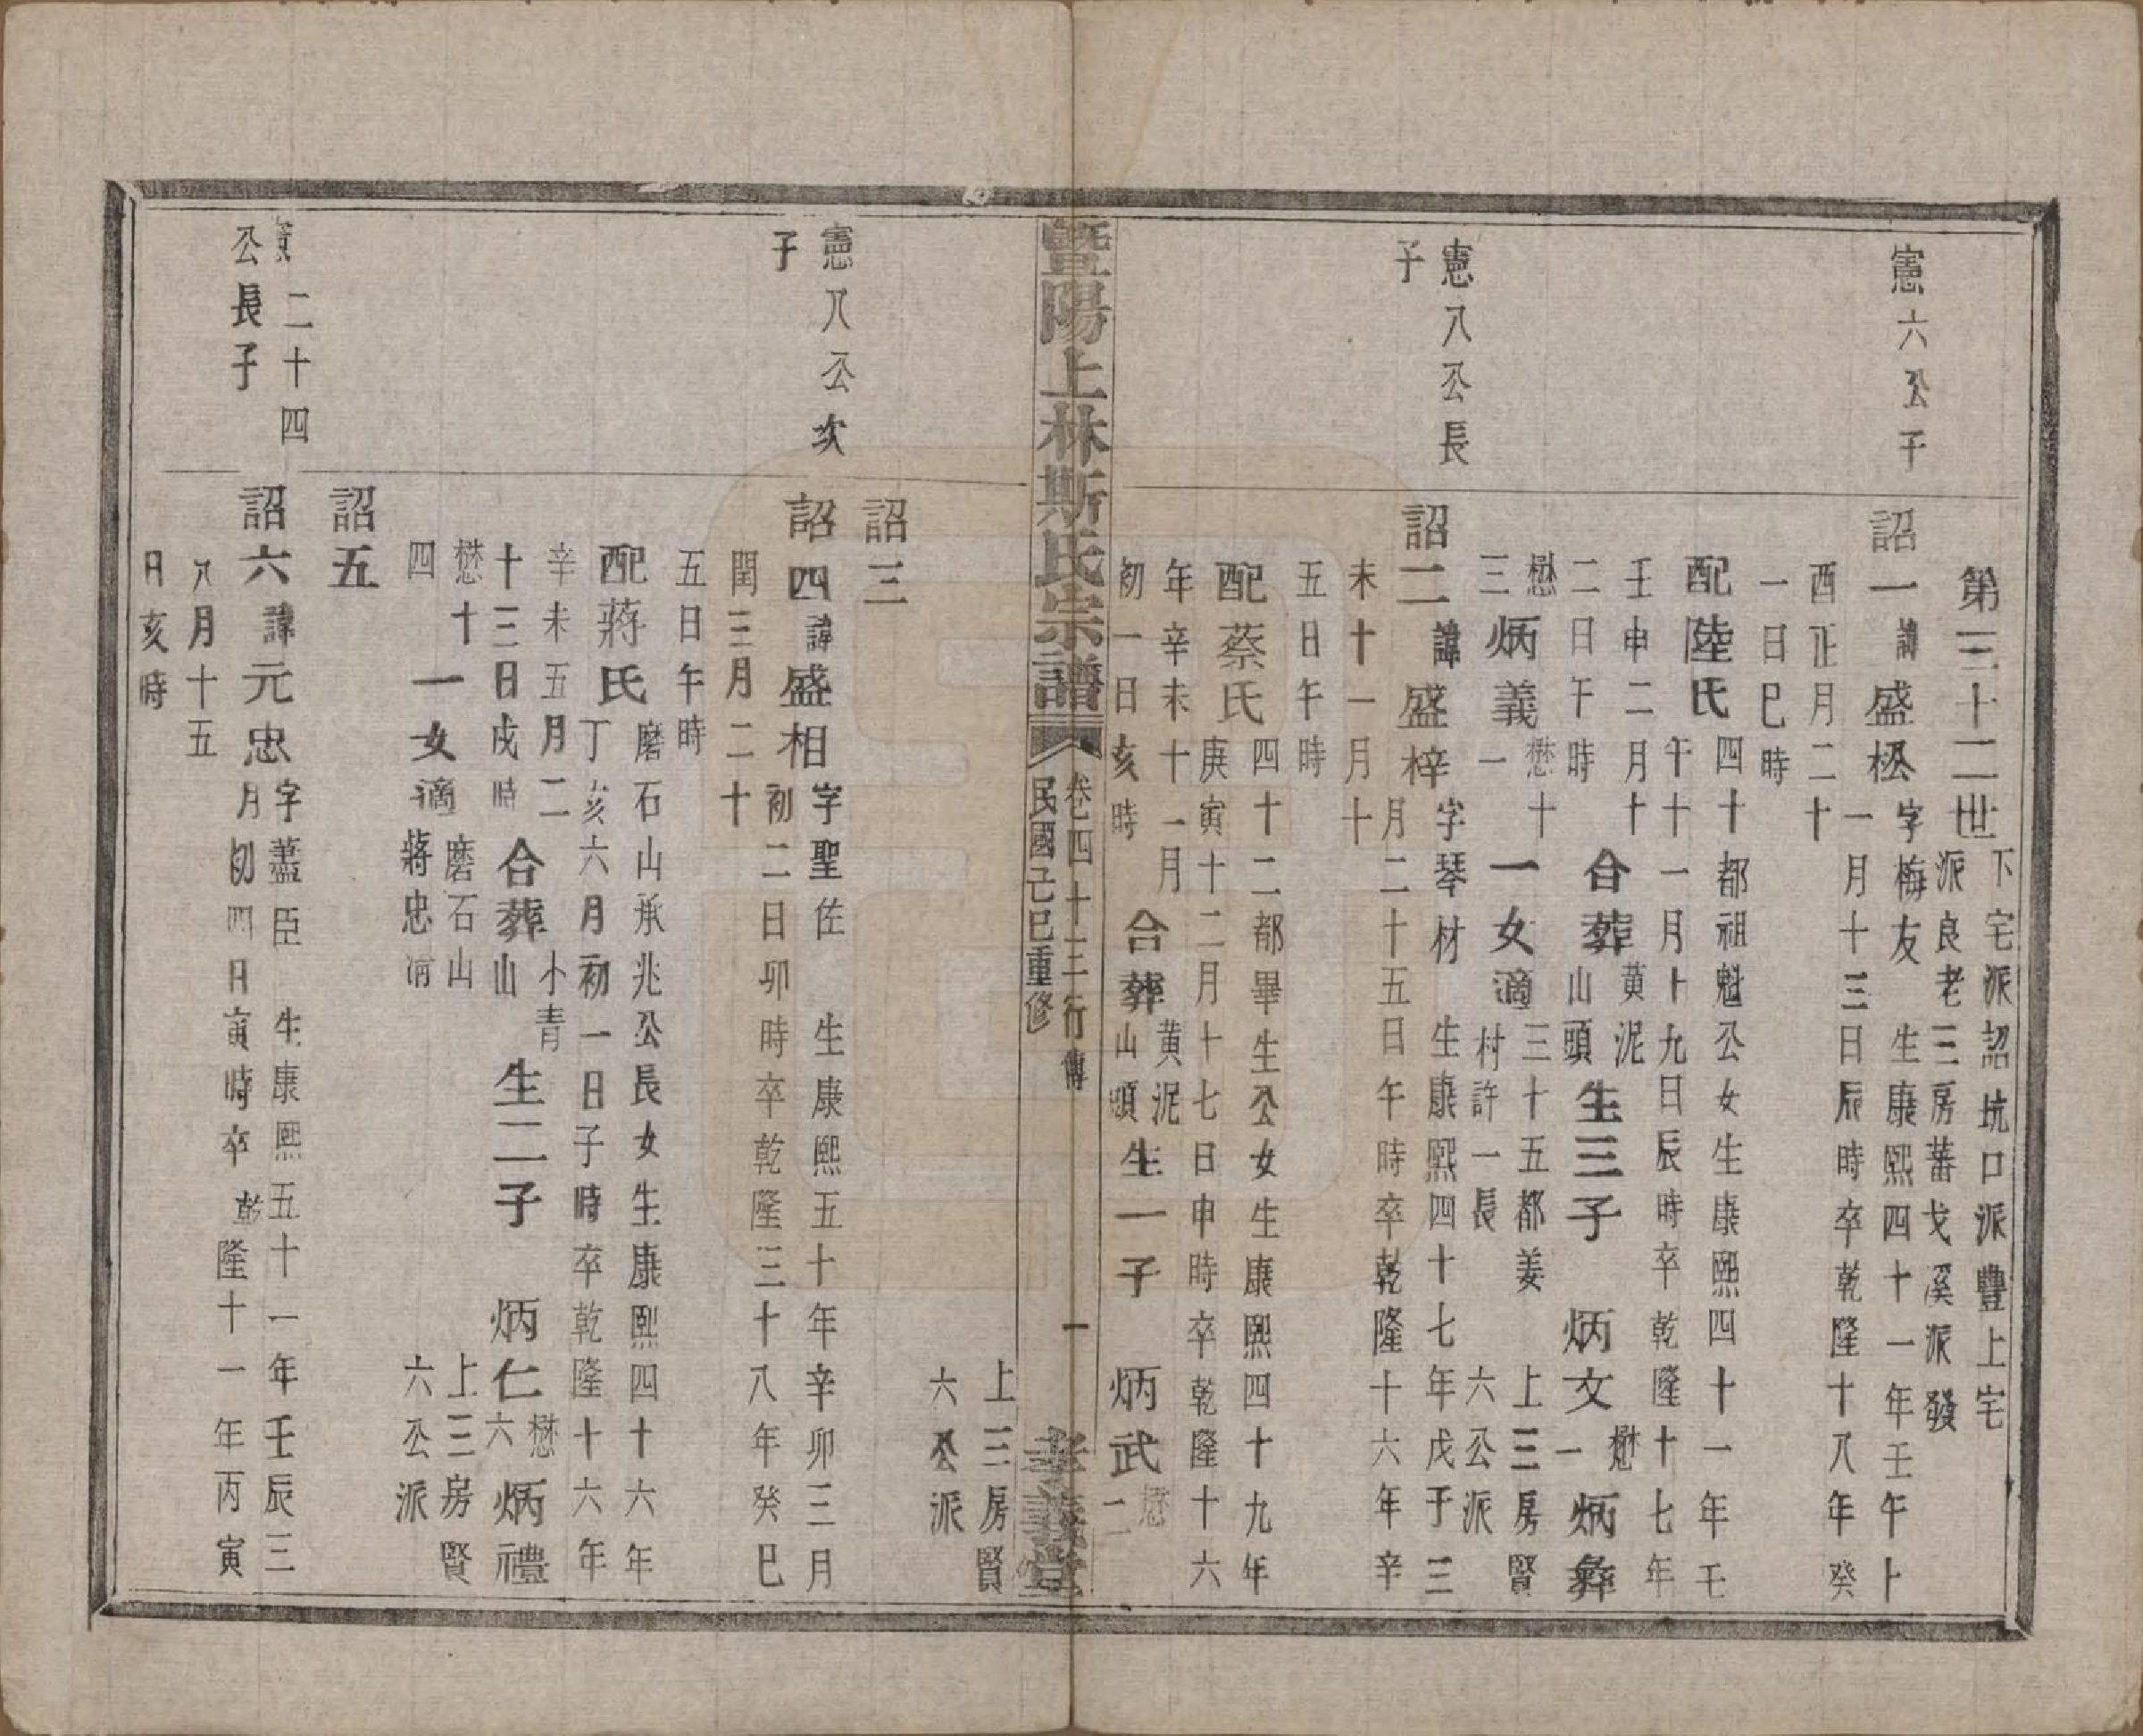 第三十二世
下宅派詔坑口派豐上宅
派良老三房蕃戈溪派發
憲六公子
詔一 諱 盛松 字梅友 生康熙四十一年壬午十
一月十三日辰時卒乾隆十八年癸
酉正月二十
一日巳時
配陸氏 四十都祖魁公女生康熙四十一年壬
午十一月十九日辰時卒乾隆十七年
壬申二月十
二日午時
合葬 黄泥
山頭
生三子 炳文 懋
一
炳彝
懋十
三
炳義 懋十
一
一女適 三十五都姜
村許一長
上三房賢
六公派
憲八公長
子
詔二 諱 盛梓 字琴材 生康熙四十七年戊子三
月二十五日午時卒乾隆十六年辛
未十一月十
五日午時
配蔡氏 四十二都畢生公女生康熙四十九年
庚寅十二月十七日申時卒乾隆十六
年辛未十一月
初一日亥時
合葬 黄泥
山頭
生一子 炳武 懋
二
暨陽上林斯氏宗譜
卷四十三行傳 一
民國己巳重修
孝義堂
上三房賢
六公派
詔三
憲八公次
子
詔四 諱 盛相 字聖佐 生康熙五十年辛卯三月
初二日卯時卒乾隆三十八年癸巳
閏三月二十
五日午時
配蔣氏 磨石山承兆公長女生康熙四十六年
丁亥六月初一日子時卒乾隆十六年
辛未五月二
十三日戌時
合葬 小青
山
生二子 炳仁 懋
六
炳禮
懋十
四
一女適 磨石山
蔣忠清
上三房賢
六公派
詔五
二十四
公長子
詔六 諱 元忠 字藎臣 生康熙五十一年壬辰三
月初四日寅時卒乾隆十一年丙寅
八月十五
日亥時